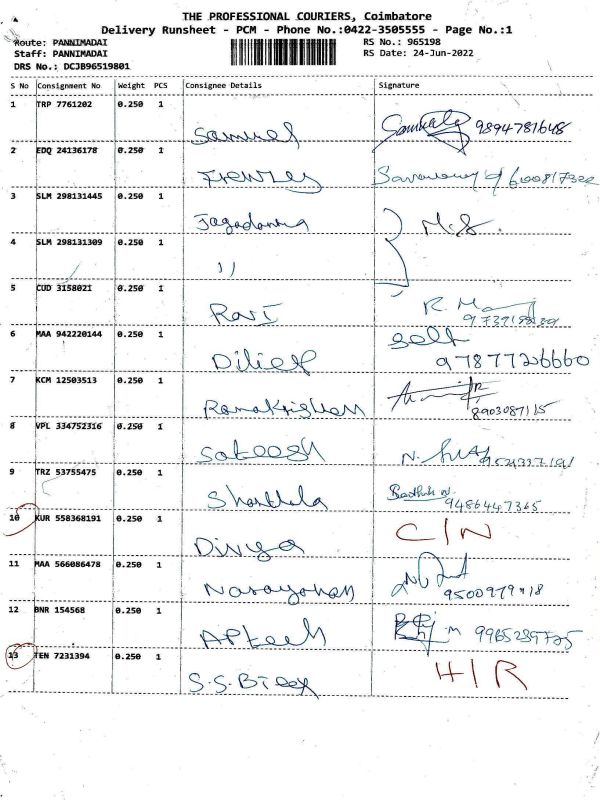 THE PROFESSIONAL COURIERS, Coimbatore
Delivery Runsheet - PCM - Phone No.:0422-3505555 - Page No.:1
Route: PANNIMADAI RS No.: 965198
Staff: PANNIMADAI RS Date: 24-Jun-2022
DRS No.: DCJB96519801
S No Consignment No Weight PCS Consignee Details Signature
1 TRP 7761202 0.250 1
Samuel 9894781648
2 EDQ 24136178 0.250 1
3 SLM 298131445 0.250 1
4 SLM 298131309 0.250 1
11
5 CUD 3158021 0.250 1
Ravi
6 MAA 942220144 0.250 1 self
Dilief 9787726660
7 KCM 12503513 0.250 1
Ramakrishan 8903087115
8 VPL 334752316 0.250 1
Sateesh
9 TRZ 53755475 0.250 1
Shanthela 9486447365
10 KUR 558368191 0.250 1 C/N
Divya
11 MAA 566086478 0.250 1
Narayanan
12 BNR 154568 0.250 1
Aptech 9965239725
13 TEN 7231394 0.250 1 H/R